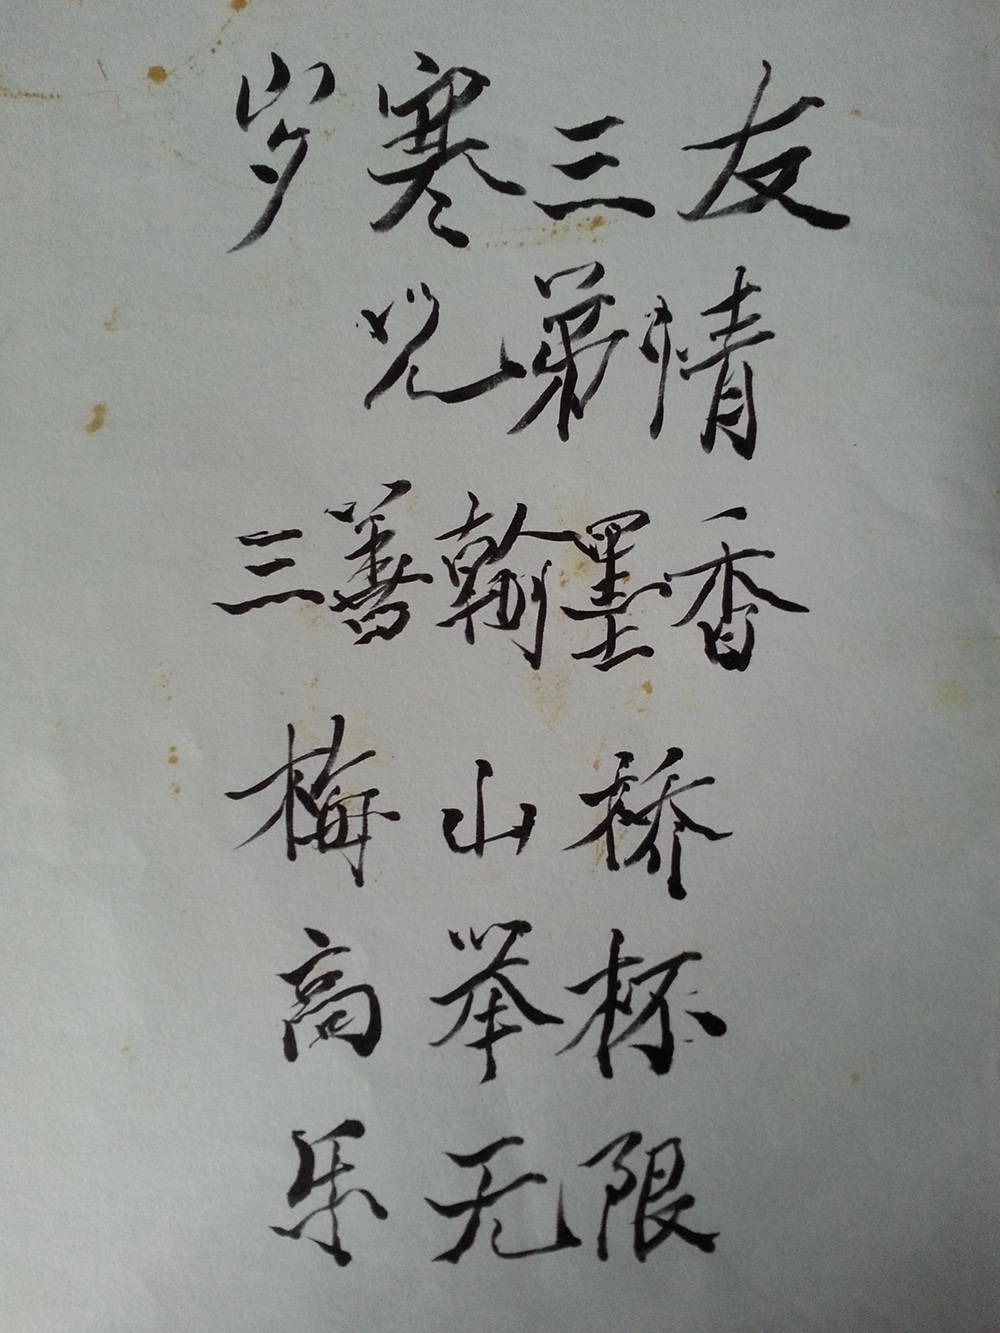 岁寒三友
兄弟情
三善翰墨香
梅山桥
高举杯
乐无限